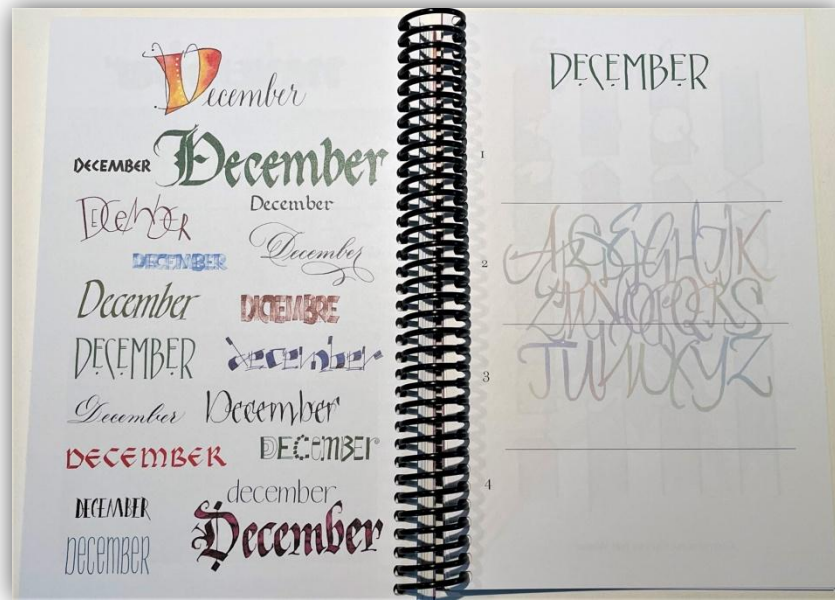 December
DECEMBER
December
December
December
DECEMBER
December
December
DICIEMBRE
DECEMBER
december
December
December
DECEMBER
DECEMBER
december
DECEMBER
December
DECEMBER
DECEMBER
1
2
ABCDEFGHIJK
LMNOPQRS
3
TUVWXYZ
4